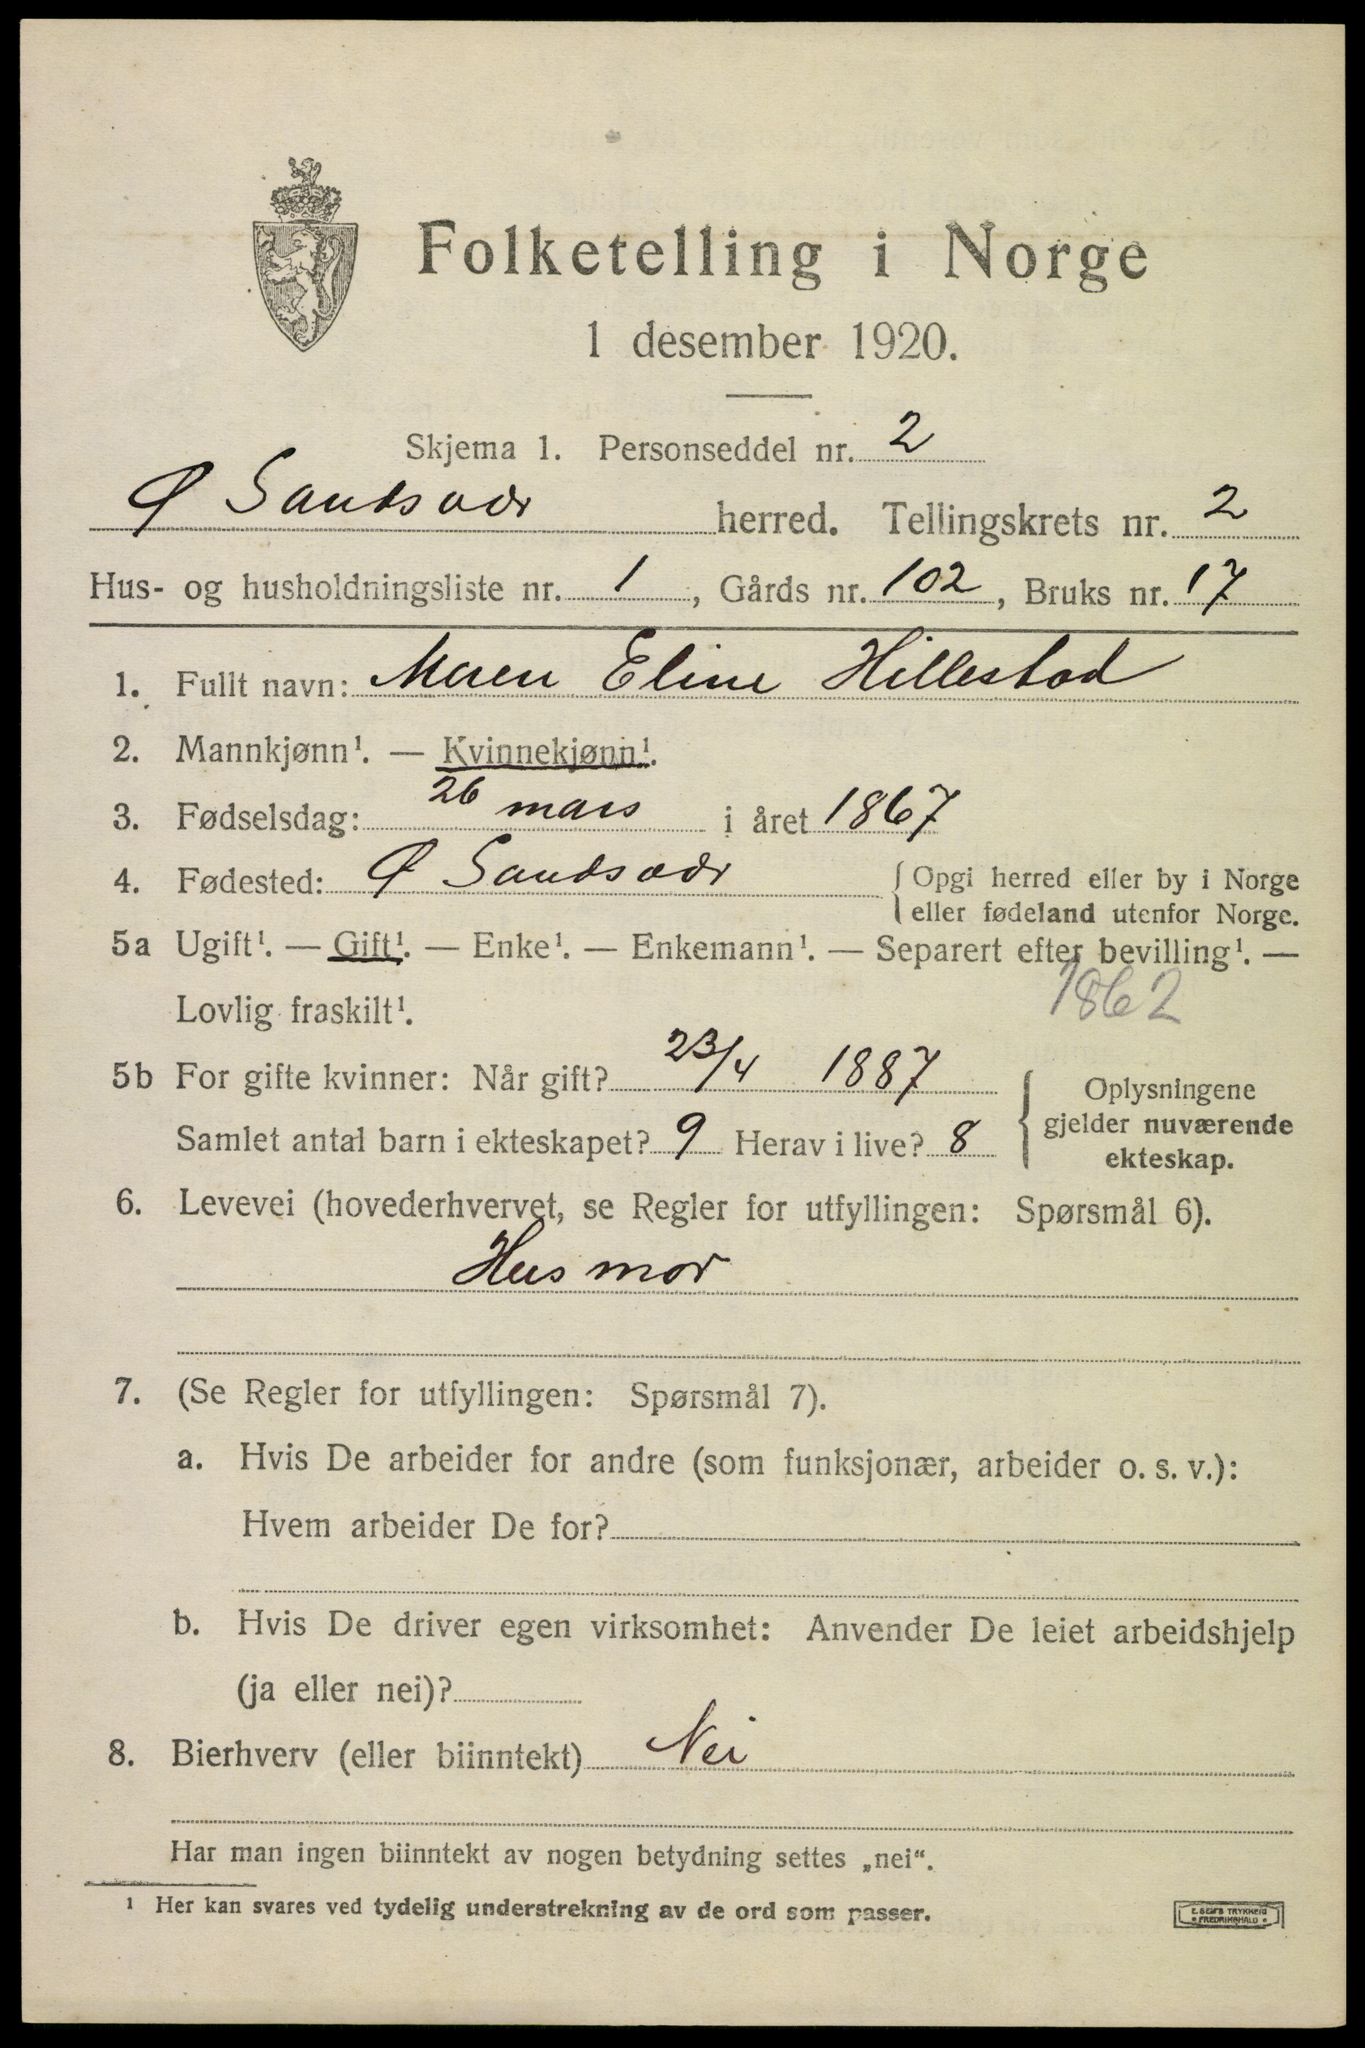 Folketelling i Norge
1 desember 1920.
Skjema 1. Personseddel nr. 2
Ø Sandsvær herred. Tellingskrets nr. 2
Hus- og husholdningsliste nr. 1, Gårds nr. 102, Bruks nr. 17
1. Fullt navn: Maren Eline Hillestad
2. Mannkjønn¹. — Kvinnekjønn¹.
3. Fødselsdag: 26 mars i året 1867
4. Fødested: Ø Sandsvær { Opgi herred eller by i Norge
eller fødeland utenfor Norge.
5a Ugift¹. — Gift¹. — Enke¹. — Enkemann¹. — Separert efter bevilling¹. —
Lovlig fraskilt¹. 1862
5b For gifte kvinner: Når gift? 23/4 1887
Samlet antal barn i ekteskapet? 9 Herav i live? 8
{ Oplysningene
gjelder nuværende
ekteskap.
6. Levevei (hovederhvervet, se Regler for utfyllingen: Spørsmål 6).
Husmor
7. (Se Regler for utfyllingen: Spørsmål 7).
a. Hvis De arbeider for andre (som funksjonær, arbeider o. s. v.):
Hvem arbeider De for?
b. Hvis De driver egen virksomhet: Anvender De leiet arbeidshjelp
(ja eller nei)?
8. Bierhverv (eller biinntekt) Nei
Har man ingen biinntekt av nogen betydning settes „nei“.
¹ Her kan svares ved tydelig understrekning av de ord som passer.
E. SEM'S TRYKKERI
FREDRIKSHALD